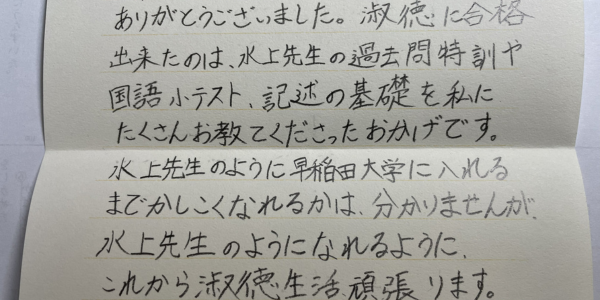 ありがとうございました。淑徳に合格
出来たのは、水上先生の過去問特訓や
国語小テスト、記述の基礎を私に
たくさんお教てくださったおかげです。
水上先生のように早稲田大学に入れる
までかしこくなれるかは、分かりませんが、
水上先生のようになれるように、
これから淑徳生活、頑張ります。